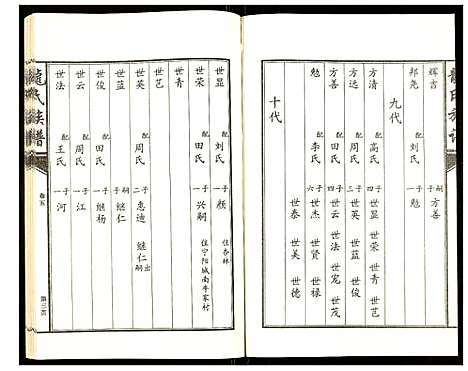 龍氏族譜
輝吉 嗣子 方善
邦堯 配 刘氏 一子 勉
九代
方清 配 高氏 四子 世显 世荣 世青 世艺
方远 配 周氏 三子 世英 世蓝 世俊
方善 配 田氏 四子 世云 世法 世宠 世茂
勉 配 李氏 六子 世杰 世贤 世禄
世泰 世美 世德
十代
世显 配 刘氏 一子 颜 住杏林
世荣 配 田氏 一子 兴嗣 住宁阳城南牛家村
世青
世艺
世英 配 周氏 二子 惠迪 继仁 出嗣
世蓝 嗣子 继仁
世俊 配 田氏 一子 继杨
世云 配 周氏 一子 江
世法 配 王氏 一子 河
龍氏族譜
卷五
第三页